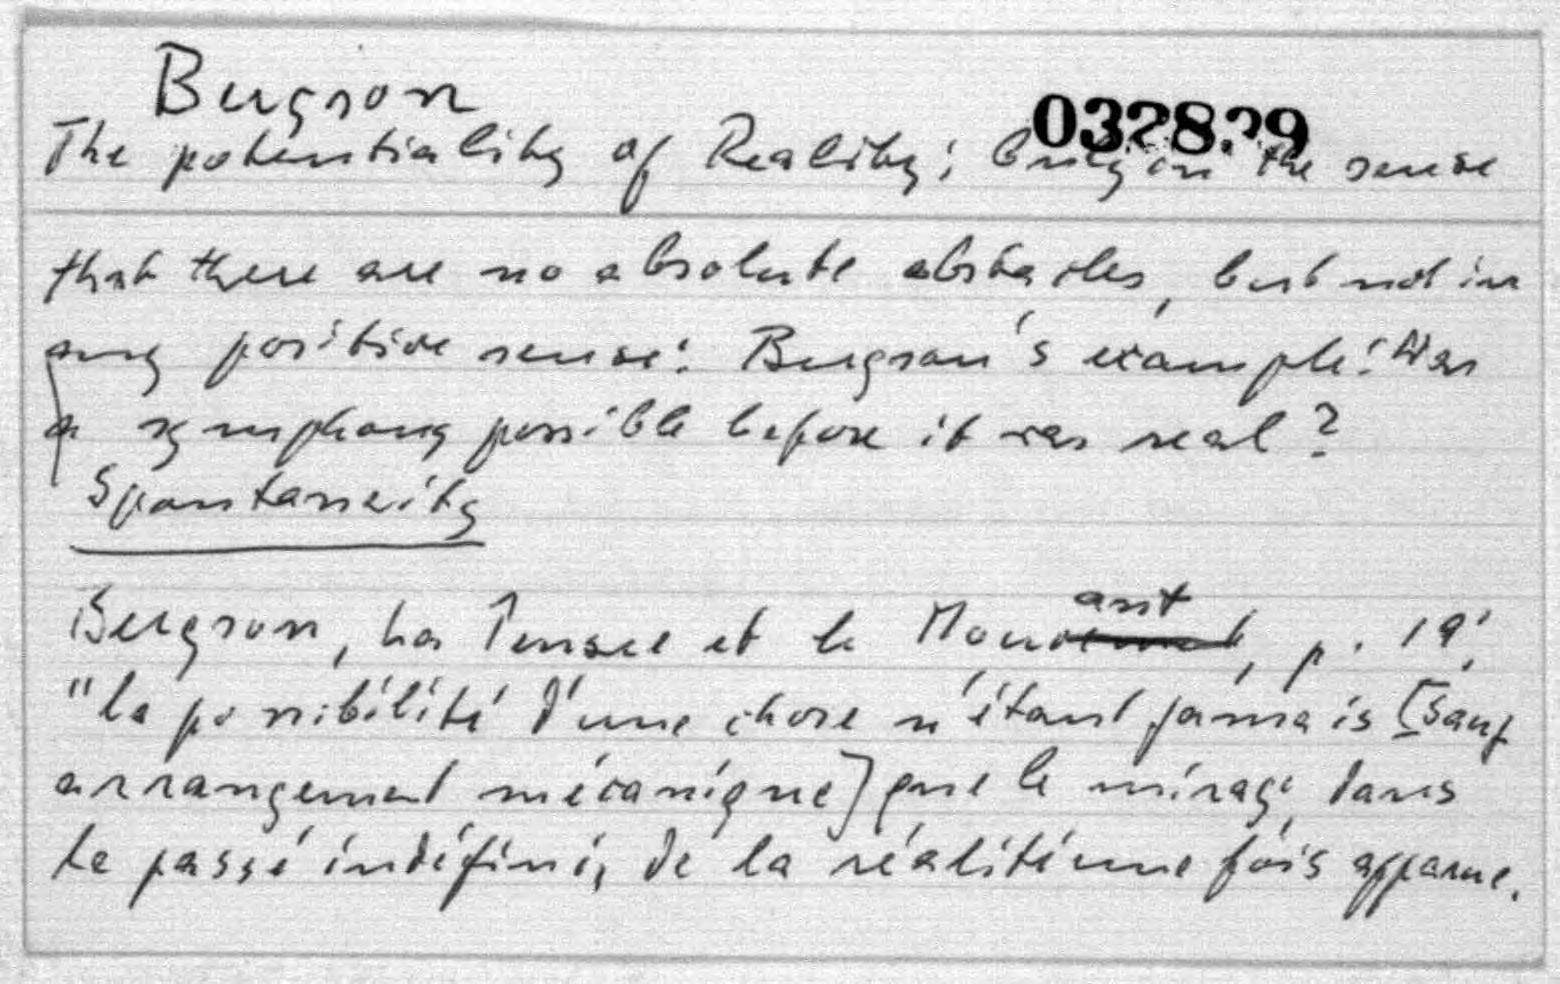 Bergson
032829
The potentiality of Reality; Only in the sense
that there are no absolute obstacles, but not in
any positive sense: Bergson's example: Was
a symphony possible before it was real?
Spontaneity
Bergson, La Pensee et le Mouvant, p. 19:
"la possibilité d'une chose n'étant jamais [sauf
arrangement mécanique] que le mirage, dans
le passé indéfini, de la réalité une fois apparue.